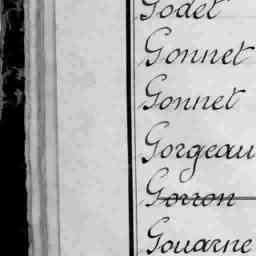 Godet
Gonnet
Gonnet
Gorgeau
Gorron
Gouarne